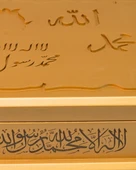 الله
محمد
محمد رسول
لا اله الا الله محمد رسول الله